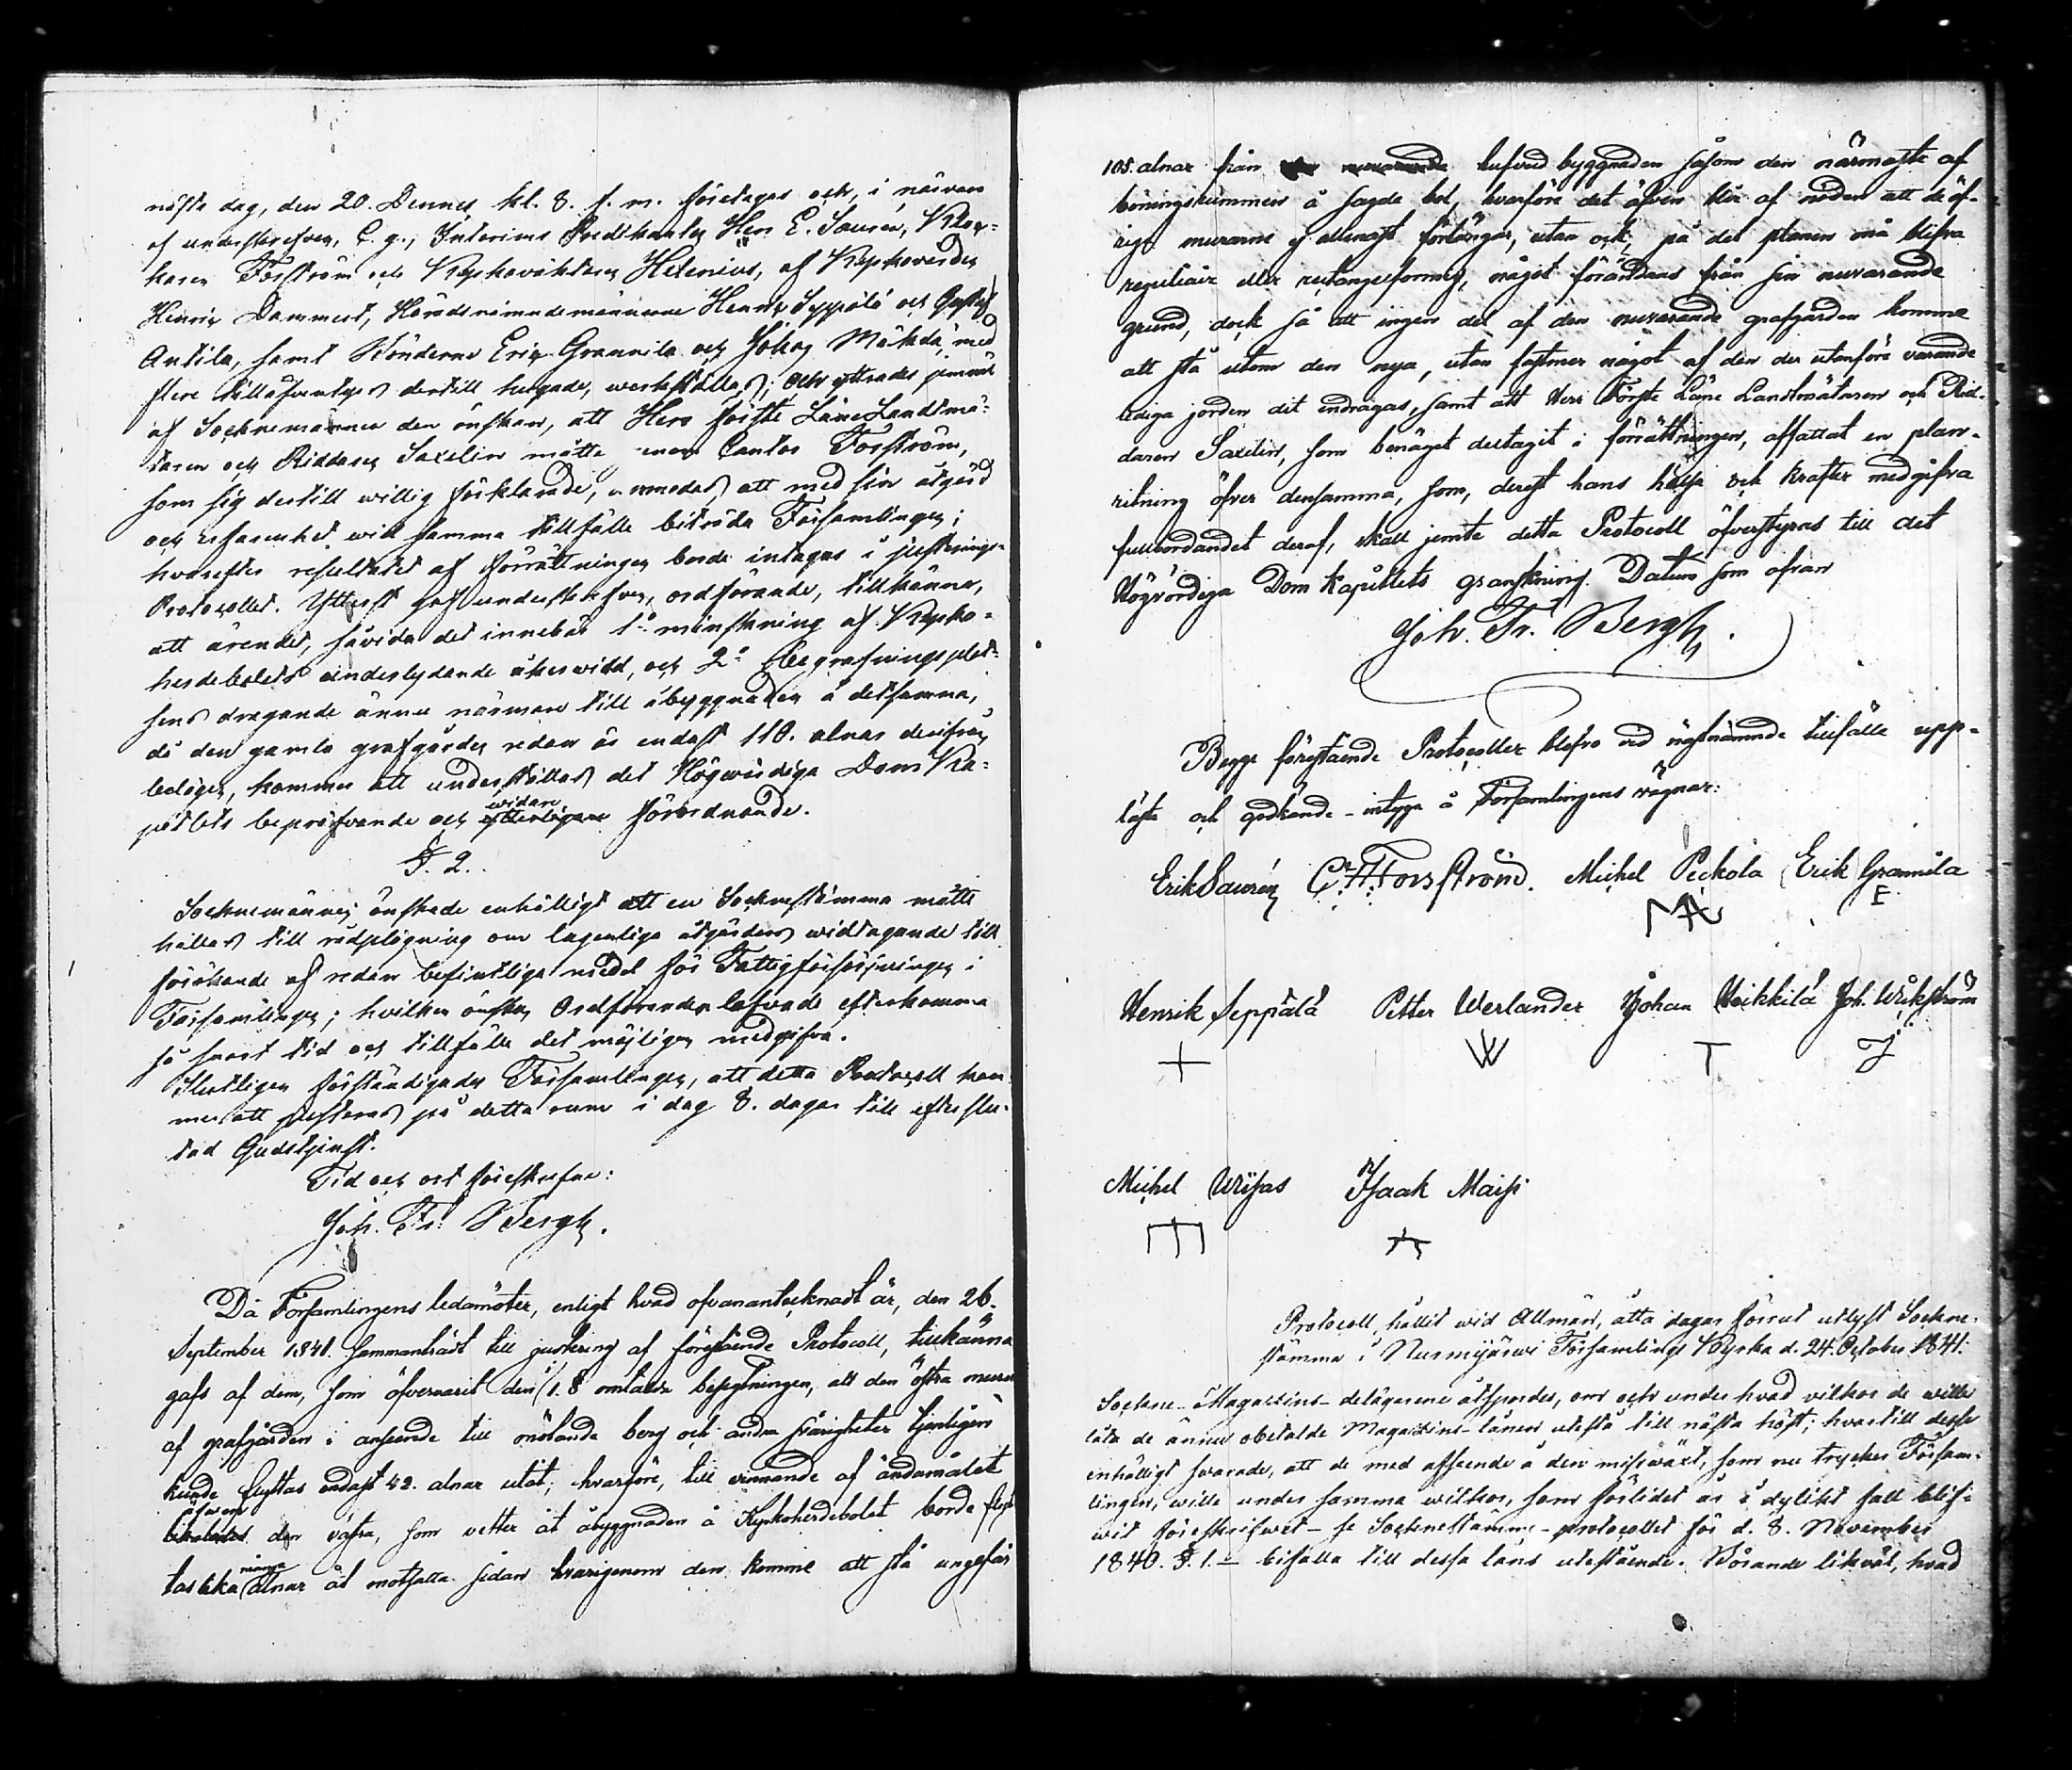 nästa dag, den 20. Dennes kl. 8. f. m. företagas och, i närvaro
af underskrefven, C. g., Interims Predikanten Herr E. Saurén, Kloc-
karen Forsström och Kyrkoväktaren Helenius, af Kyrkovärden
Henric Dammert, Häradsnämndemännerne Henric Seppälä och Gustaf
Antila, samt Bönderne Eric Grannila och Johan Mäkelä, med
flere tilläfventyrs dertill hugade, werkställas; och yttrades jemväl
af Socknemännen den önskan, att Herr förste Läne Landtmä-
taren och Riddaren Saxelin måtte genom Cantor Forsström,
som sig dertill willig förklarade, anmodas att med sin åtgärd
och erfarenhet wid samma tillfälle biträda Församlingen;
hvarefter resultatet af förrättningen borde intagas i justerings-
Protocollet. Ytterst gaf underskrefven, ordförande, tillkänna,
att ärendet, såvida det innebär 1:o minskning af Kyrko-
herdebolets underlydande åkerwidd, och 2:o begrafningsplat-
sens dragande ännu närmare till åbyggnaden å detsamma,
då den gamla grafgården redan är endast 110. alnar derifrån
belägen, kommer att underställas det Högwürdiga Dom Ka-
pitlets bepröfvande och widare förordnande.
§. 2.
Socknemännen önskade enhälligt att en Socknestämma måtte
hållas till rådplägning om lagenliga åtgärders widtagande till
förökande af redan befintliga medel för Fattigförsörjningen i
Församlingen; hvilken önskan Ordföranden lofvade efterkomma
så snart tid och tillfälle det möjligen medgifva.
Slutligen förständigades Församlingen, att detta Protocoll kom-
mer att justeras på detta rum i dag 8. dagar till efter slu-
tad Gudstjenst.
Tid och ort föreskrefne:
Joh. Fr. Bergh.
Då Församlingens ledamöter, enligt hvad ofvanantecknadt är, den 26.
September 1841. sammanträdt till justering af förestående Protocoll, tillkänna
gafs af dem, som öfvervarit den i 1. § omtalda besigtningen, att den östra muren
af grafgården i anseende till mötande berg och andra svårigheter tjenligen
kunde flyttas endast 42. alnar utåt; hvarföre, till vinnande af ändamålet
äfwen den västra, som vetter åt åbyggnaden å Kyrkoherdebolet borde flyt-
tas lika många alnar åt motsatta sidan hvarigenom den komme att stå ungefär
105. alnar från hufvud byggnaden såsom den närmaste af
boningsrummen å sagde bol, hvarföre det äfven blir af nöden att de öf-
rige murarne ej allenast förlängas, utan ock, på det planen må blifva
reguliair eller rectangelformig, något förändras från sin nuvarande
grund, dock så att ingen del af den nuvarande grafgården komme
att stå utom den nya, utan fastmer något af den der utanföre varande
lediga jorden dit indragas, samt att Herr Förste Läne Landtmätaren och Rid-
daren Saxelin, som benäget deltagit i förrättningen, affattat en plan-
ritning öfver densamma, som, derest hans hälsa och krafter medgifva
fullbordandet deraf, skall jemte detta Protocoll öfverstyras till det
Högvördiga Dom Kapitlets granskning. Datum som ofvan
Joh. Fr. Bergh.
Begge förestående Protocoller blefvo vid sistnämnde tillfälle upp-
läste och godkände - intyga å Församlingens vägnar:
Erik Saurén C. H. Forsström. Michel Peckola Erik Grannila
E
Henrik Seppälä Petter Werlander Johan Heikkilä Joh. Wikström
+ W T J
Michel Uusas Isaak Maisi
Protocoll, hållit wid Allmän, åtta dagar förut utlyst Sockne-
stämma i Nurmijärwi Församlings Kyrka d. 24. October 1841.
Sockne-Magazins-delägarene åtspordes, om och under hvad vilkor de wille
låta de ännu obetalde Magazins-lånen utestå till nästa höst; hvartill desse
enhälligt svarade, att de med afseende å den missväxt, som nu trycker Försam-
lingen, wille under samma wilkor, som förlidet år i dylikt fall blif-
wit föreskrifwet - se Socknestämme-protocollet för d. 8. November
1840. §. 1. - bifalla till dessa låns utestående. Börande likväl, hvad